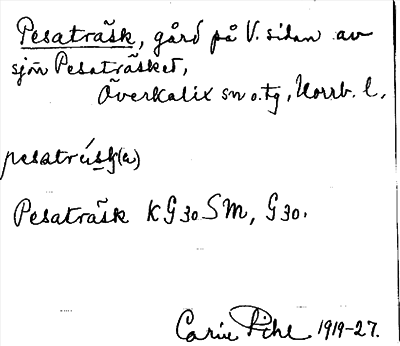 Pesaträsk, gård på V. sidan av
sjön Pesaträsket,
Överkalix sn o. tg, Norrb. l.
pesatrúsḱ(a)
Pesaträsk KG 30 SM, G 30.
Carin Pihl 1919-27.